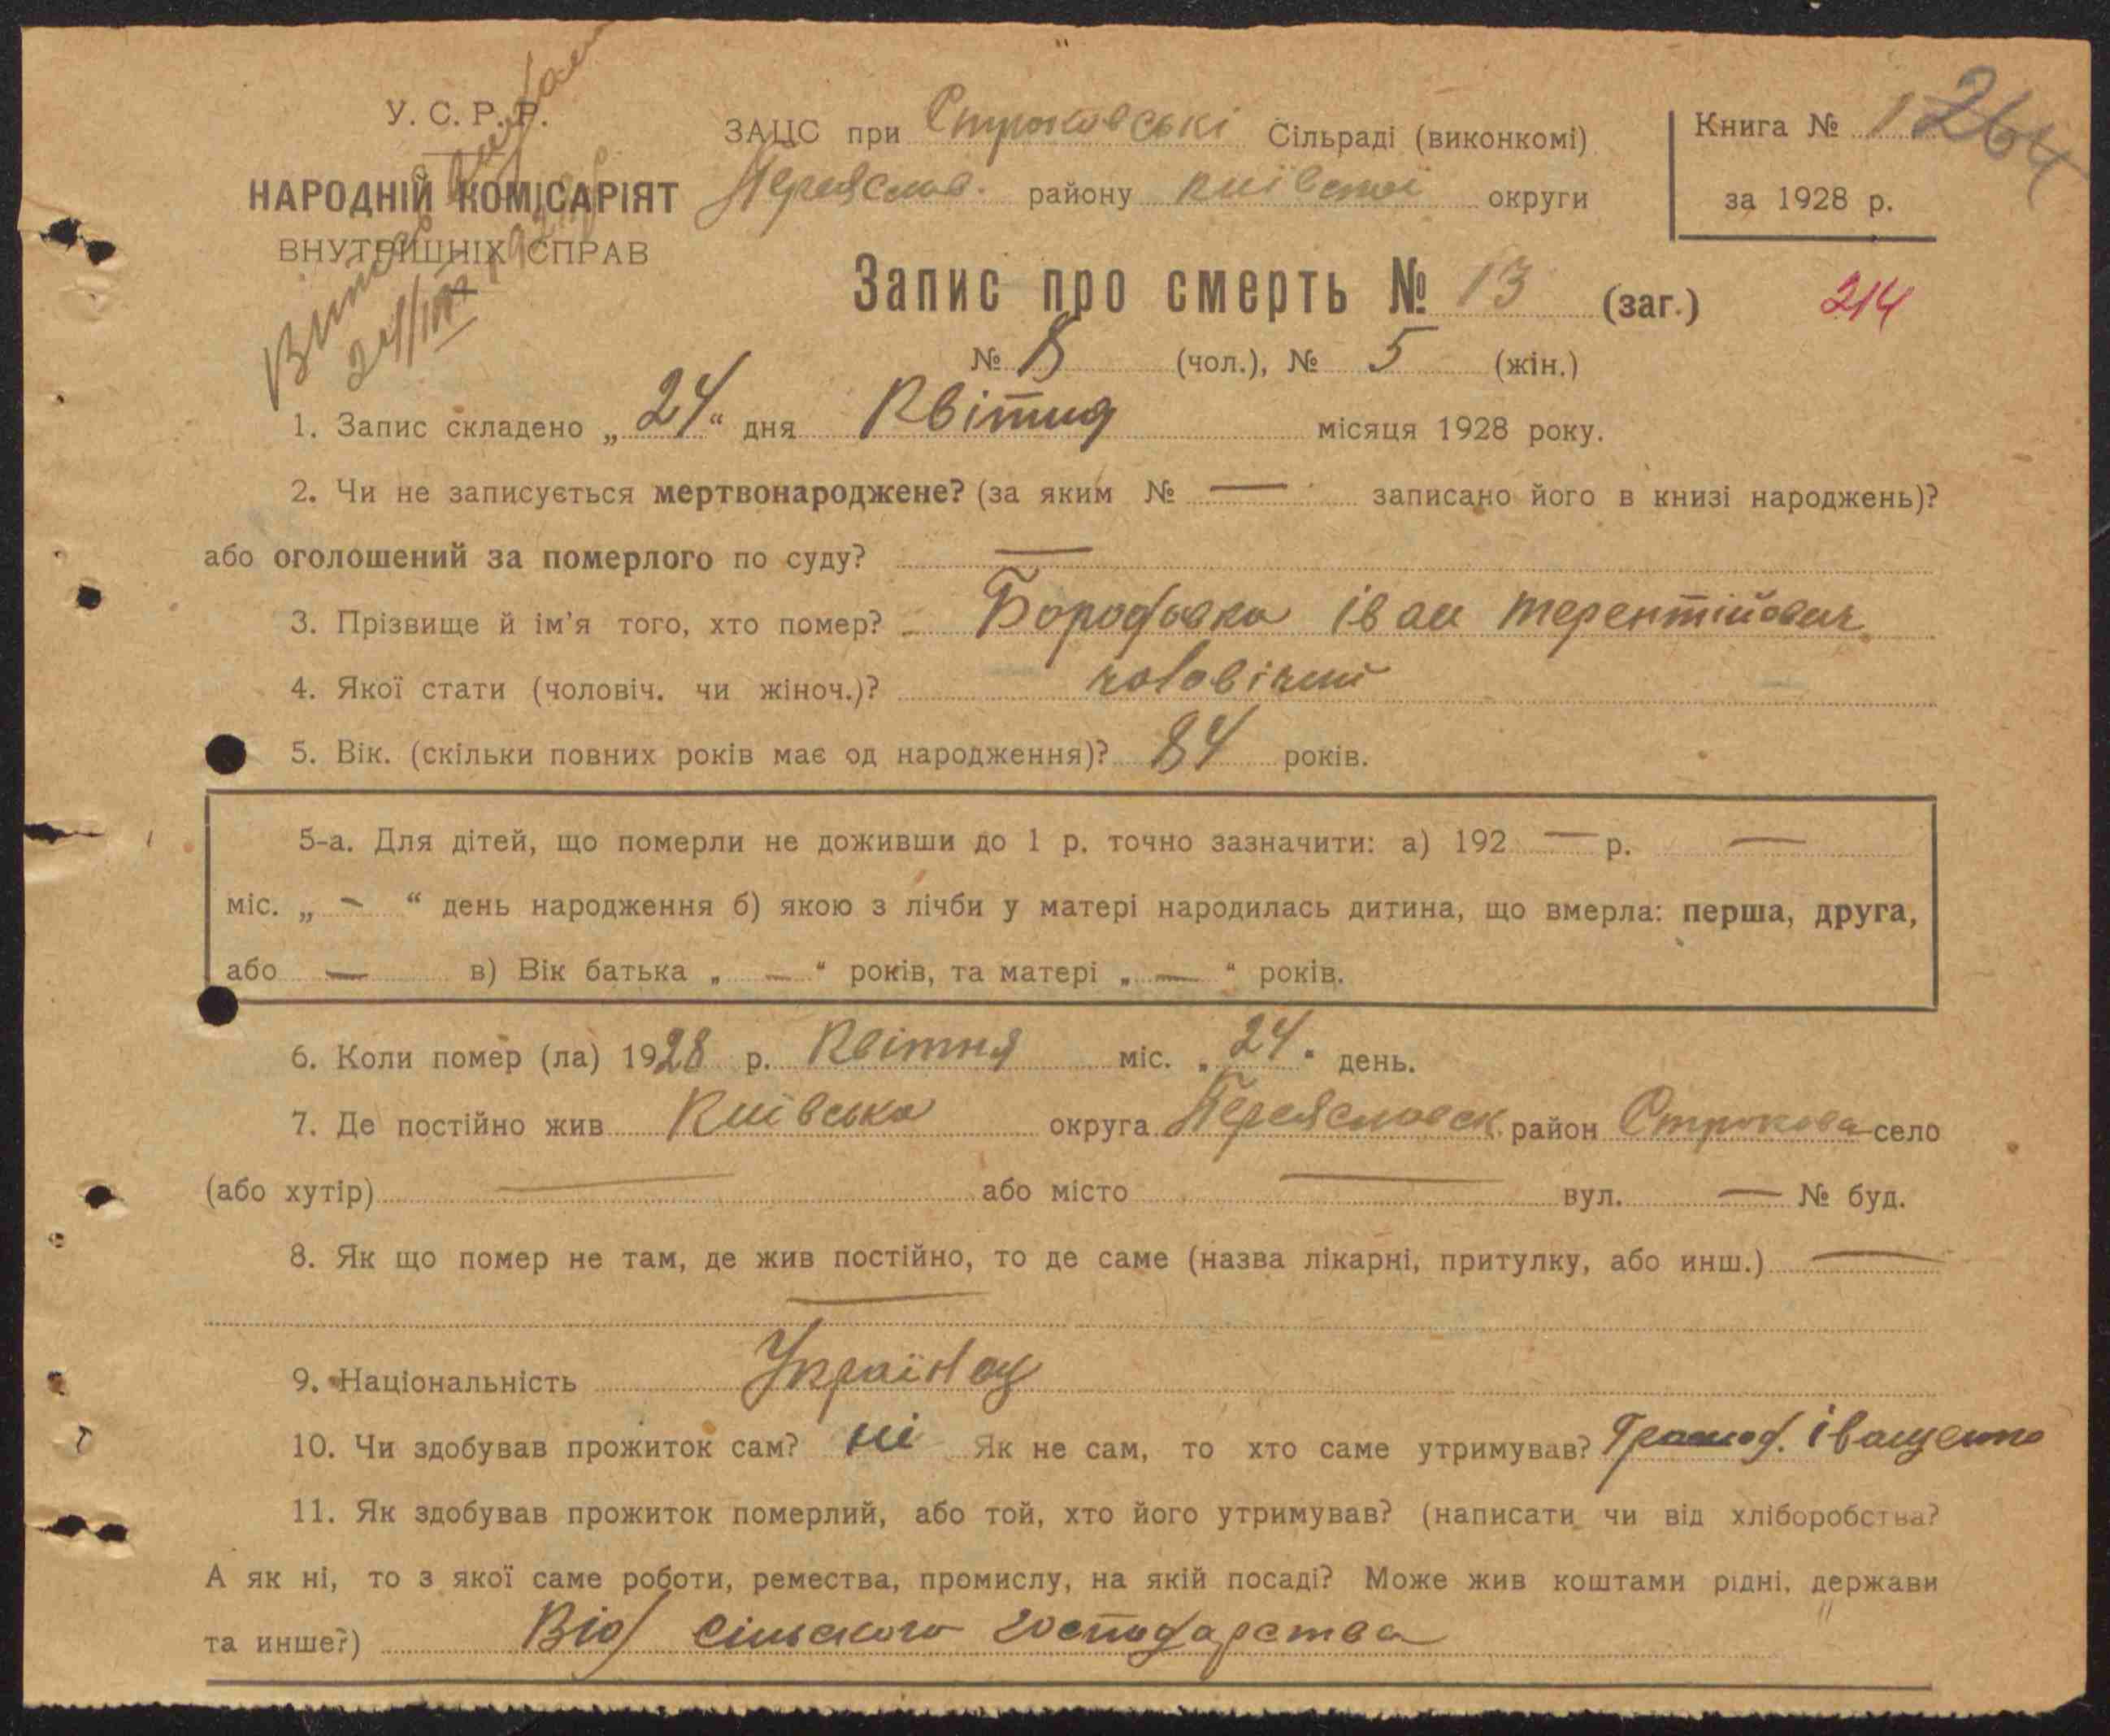 У. С. Р. Р.
НАРОДНІЙ КОМІСАРІЯТ
ВНУТРІШНІХ СПРАВ
ЗАЦС при Строковські Сільраді (виконкомі)
Переяслав. району Київської округи
Книга № 1 264
за 1928 р.
Запис про смерть № 13 (заг.)
214
№ 8 (чол.), № 5 (жін.)
1. Запис складено „ 24 “ дня Квітня місяця 1928 року.
2. Чи не записується мертвонароджене? (за яким № — записано його в книзі народжень)?
або оголошений за померлого по суду? —
3. Прізвище й ім'я того, хто помер? Бородавка Іван терентійович
4. Якої стати (чоловіч. чи жіноч.)? чоловічий
5. Вік. (скільки повних років має од народження)? 84 років.
5-а. Для дітей, що померли не доживши до 1 р. точно зазначити: а) 192 — р. —
міс. „ - “ день народження б) якою з лічби у матері народилась дитина, що вмерла: перша, друга,
або — в) Вік батька „ — “ років, та матері „ — “ років.
6. Коли помер (ла) 1928 р. Квітня міс. „ 24 “ день.
7. Де постійно жив Київська округа Переяславск. район Строкова село
(або хутір) — або місто — вул. — № буд.
8. Як що помер не там, де жив постійно, то де саме (назва лікарні, притулку, або инш.) —
—
9. Національність Українец
10. Чи здобував прожиток сам? ні Як не сам, то хто саме утримував? Іващенко
11. Як здобував прожиток померлий, або той, хто його утримував? (написати чи від хліборобства?
А як ні, то з якої саме роботи, ремества, промислу, на якій посаді? Може жив коштами рідні, держави
та инше?) Від сільского господарства